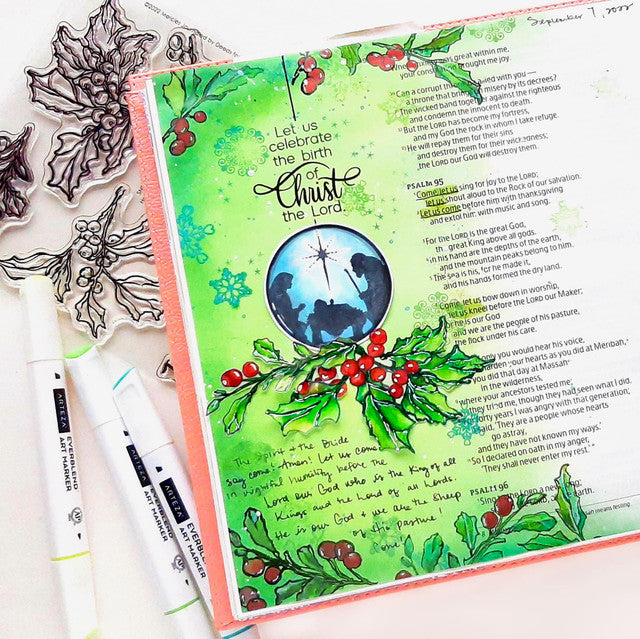 September 7, 2022
Let us
celebrate
the birth
of
Christ
the Lord.
great within me,
your consolation brought me joy.
Can a corrupt throne be allied with you —
a throne that brings on misery by its decrees?
The wicked band together against the righteous
and condemn the innocent to death.
But the LORD has become my fortress,
and my God the rock in whom I take refuge.
He will repay them for their sins
and destroy them for their wickedness;
the LORD our God will destroy them.
PSALM 95
Come, let us sing for joy to the LORD;
let us shout aloud to the Rock of our salvation.
Let us come before him with thanksgiving
and extol him with music and song.
For the LORD is the great God,
the great King above all gods.
In his hand are the depths of the earth,
and the mountain peaks belong to him.
The sea is his, for he made it,
and his hands formed the dry land.
Come, let us bow down in worship,
let us kneel before the LORD our Maker;
for he is our God
and we are the people of his pasture,
the flock under his care.
only you would hear his voice,
harden your hearts as you did at Meribah,
you did that day at Massah
in the wilderness,
where your ancestors tested me;
they tried me, though they had seen what I did.
forty years I was angry with that generation;
said, 'They are a people whose hearts
go astray,
and they have not known my ways.'
So I declared on oath in my anger,
'They shall never enter my rest.'"
PSALM 96
Sing to the LORD a new song;
LORD, all the earth.
means testing.
The Spirit & the Bride
say come! Amen! Let us come
in worshipful humility before the
Lord our God who is the King of all
Kings and the Lord of all Lords.
He is our God & we are the sheep
of His pasture!
Come!
ARTEZA
EVERBLEND
ART MARKER
ARTEZA
EVERBLEND
ART MARKER
ARTEZA
EVERBLEND
ART MARKER